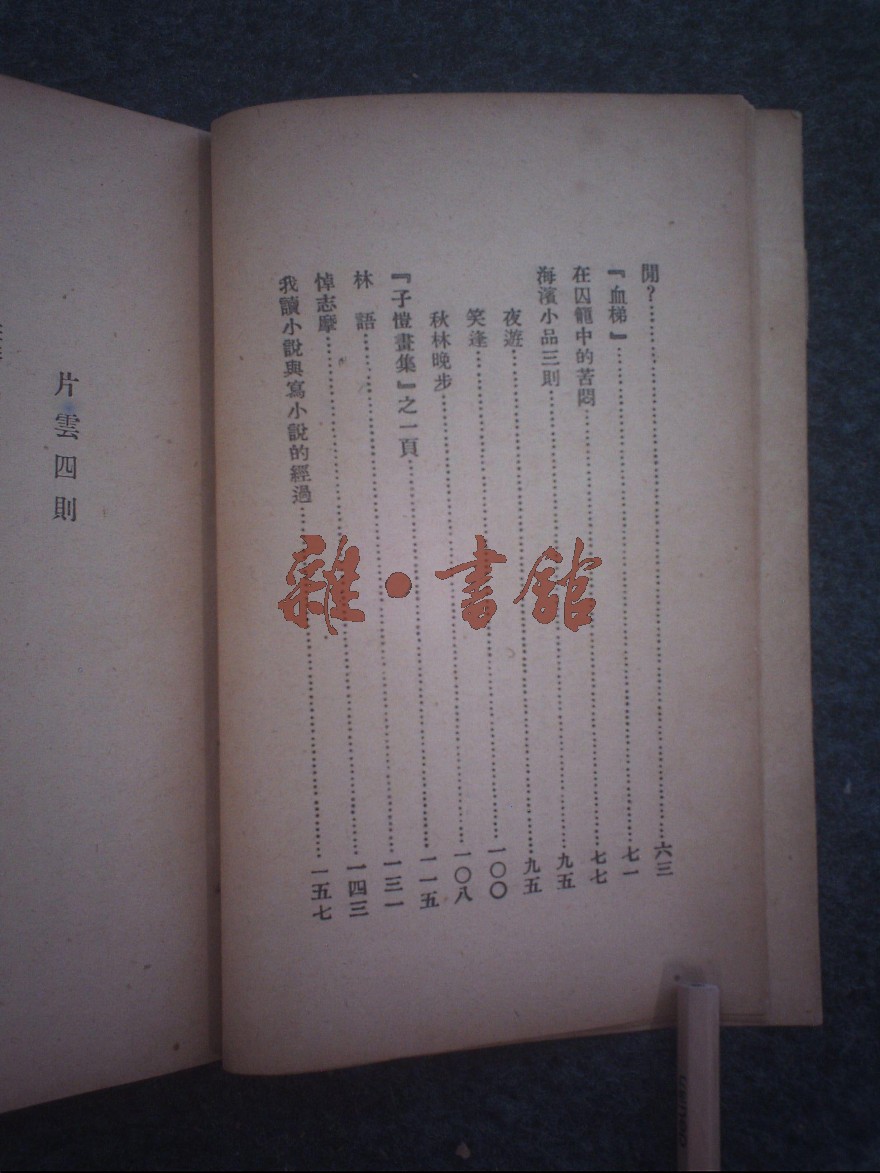 聞？……六三
『血梯』……七一
在囚籠中的苦悶……七七
海濱小品三則……九五
夜遊……九五
笑逢……一〇〇
秋林晚步……一〇八
『子愷畫集』之一頁……一一五
林語……一三一
悼志摩……一四三
我讀小說與寫小說的經過……一五七
片雲四則
雜·書館